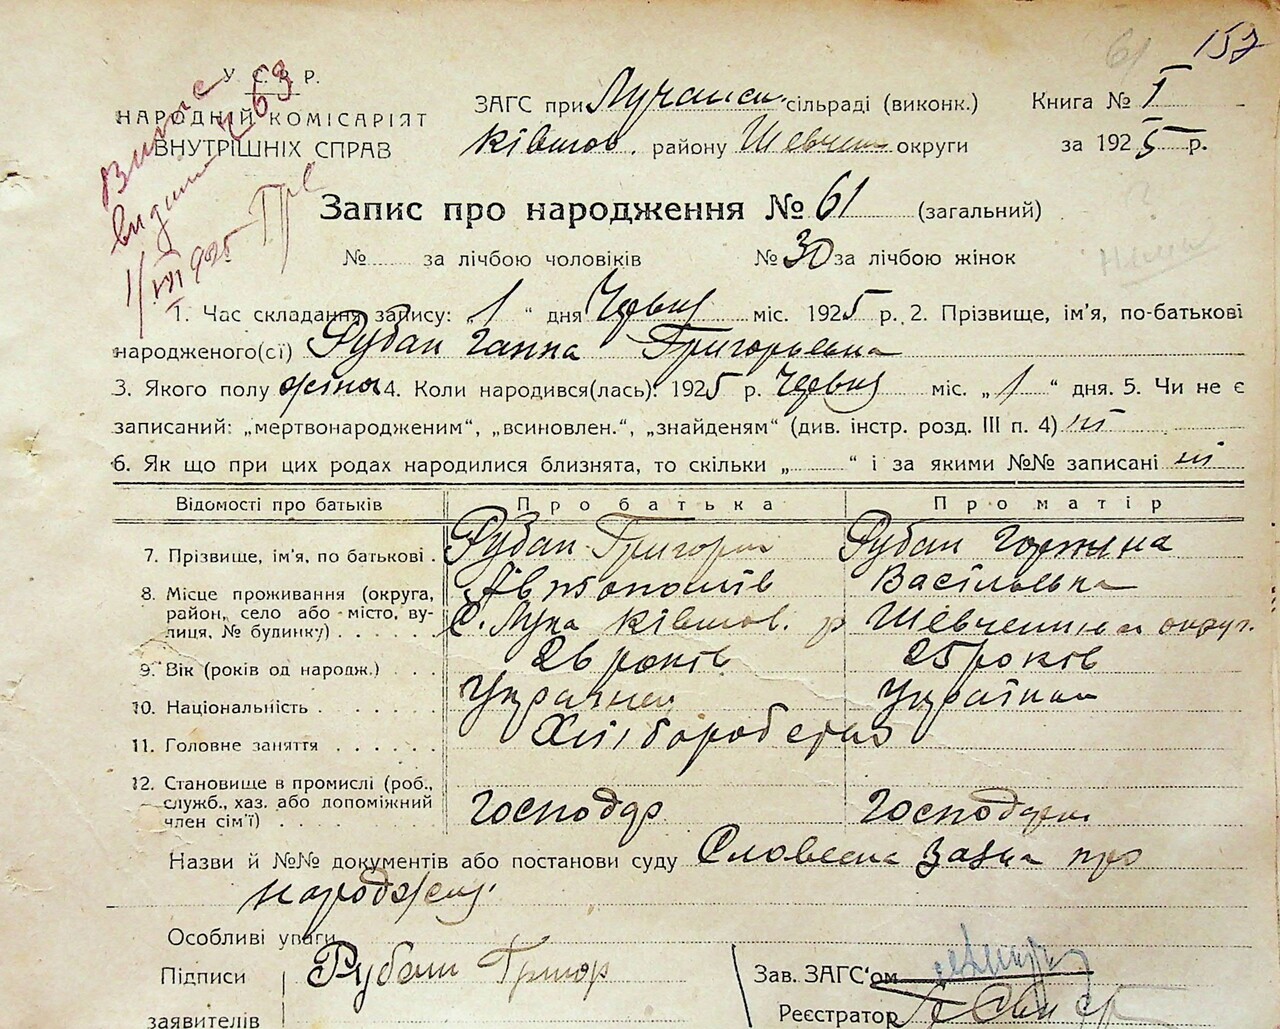 157
61
У С Р Р.
НАРОДНІЙ КОМІСАРІЯТ
ВНУТРІШНІХ СПРАВ
Випис
видани № 63
1/VII 925
ЗАГС при Лучанськ. сільраді (виконк.) Книга № I
Ківшов. району Шевчен округи за 1925 р.
Запис про народження № 61 (загальний)
№ за лічбою чоловіків № 30 за лічбою жінок
1. Час складання запису: „1“ дня Червня міс. 1925 р. 2. Прізвище, ім'я, по-батькові
народженого(сі) Рубан Ганна Григорьевна
3. Якого полу жіноч 4. Коли народився(лась): 1925 р. Червня міс. „1“ дня. 5. Чи не є
записаний: „мертвонародженим“, „всиновлен.“, „знайденям“ (див. інстр. розд. III п. 4) ні
6. Як що при цих родах народилися близнята, то скільки „ “ і за якими №№ записані ні
Відомості про батьків Про батька Про матір
7. Прізвище, ім'я, по батькові . Рубан Григорій Рубан Горпина
Автономів Васільевна
8. Місце проживання (округа, район, село або місто, вулиця, № будинку) с. Лука Ківшов. р Шевченківська округ.
9. Вік (років од народж.) 26 років 25 років
10. Національність Українец Українка
11. Головне заняття Хліборобство
12. Становище в промислі (роб., служб., хаз. або допоміжний член сім'ї) Господар Господарка
Назви й №№ документів або постанови суду Словесна заява про
народження
Особливі уваги
Підписи Рубан Григор Зав. ЗАГС'ом
заявителів Реєстратор